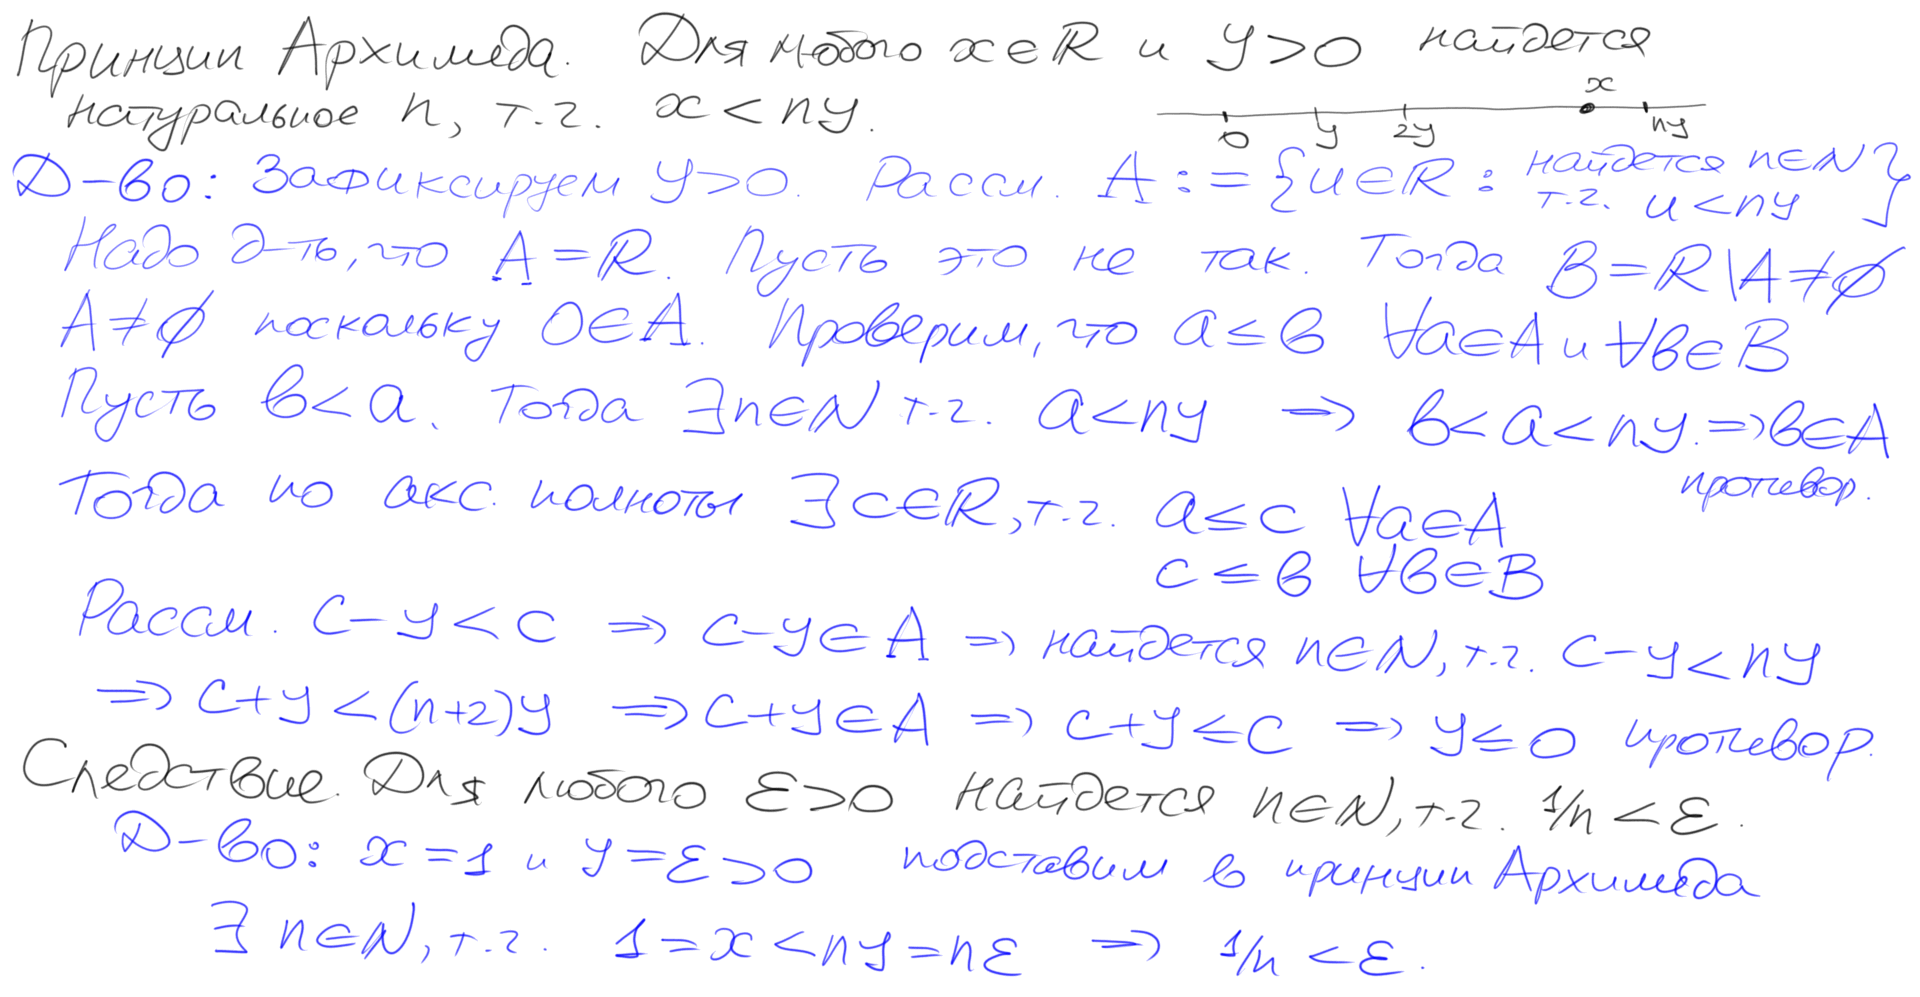 Принцип Архимеда. Для любого x∈ℝ и y>0 найдется
натуральное n, т.ч. x<ny.
0 y 2y x ny
Д-во: Зафиксируем y>0. Рассм. A:={u∈ℝ: найдется n∈ℕ т.ч. u<ny}
Надо д-ть, что A=ℝ. Пусть это не так. Тогда B=ℝ\A≠∅
A≠∅ поскольку 0∈A. Проверим, что a≤b ∀a∈A и ∀b∈B
Пусть b<a. Тогда ∃n∈ℕ т.ч. a<ny ⇒ b<a<ny. ⇒ b∈A
противор.
Тогда по акс. полноты ∃c∈ℝ, т.ч. a≤c ∀a∈A
c≤b ∀b∈B
Рассм. c-y<c ⇒ c-y∈A ⇒ найдется n∈ℕ, т.ч. c-y<ny
⇒ c+y<(n+2)y ⇒ c+y∈A ⇒ c+y≤c ⇒ y≤0 противор.
Следствие. Для любого ε>0 найдется n∈ℕ, т.ч. 1/n<ε.
Д-во: x=1 и y=ε>0 подставим в принцип Архимеда
∃ n∈ℕ, т.ч. 1=x<ny=nε ⇒ 1/n<ε.